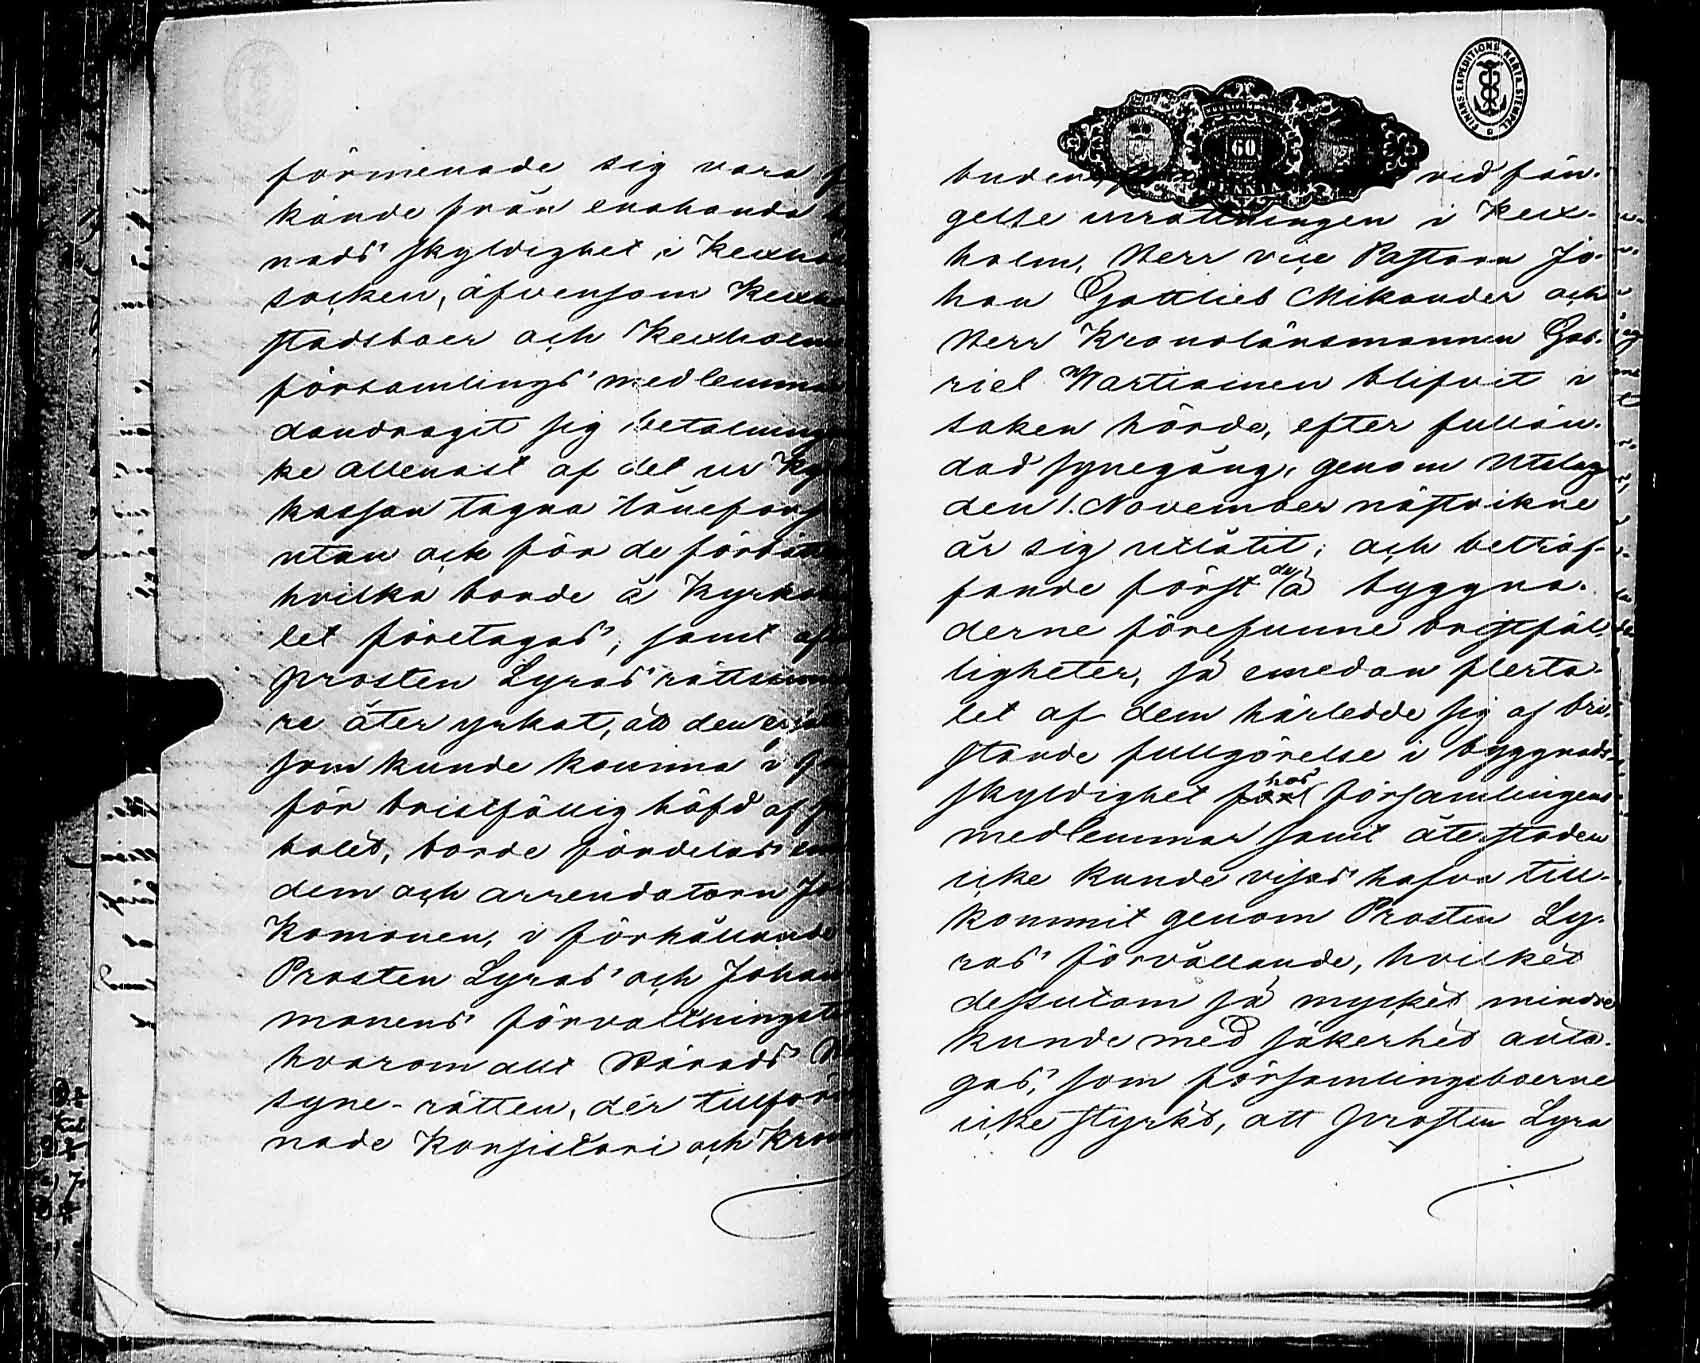 förmenade sig vara
kände från enahanda
nads skyldighet i Kexho
socken, äfvensom Kexho
stadsboer och Kexholm
församlings medlemma
dandragit sig betalning
ke allenast af det ur Ky
kassan tagna låneför
utan och för de förbätt
hvilka borde å Kyrko
let företagas, samt af
prosten Lyras rättsinne
re åter yrkat, att den er
som kunde komma i
för bristfällig häfd af
bolet, borde fördelas em
dem och arrendatorn Jo
Komonen, i förhållande
Prosten Lyras och Johan
monens förvaltningst
hvarom allt Härads
syne-rätten, der tillför
nade Konsistori och Kron
FINANS. EXPEDITIONS. KARTA. STEMPEL
60
PENNIÄ
buden, vid fän-
gelse inrättningen i Kex-
holm, Herr vice Pastorn Jo-
han Gottlieb Mikander och
Herr Kronolänsmannen Gab-
riel Wartiainen blifvit i
saken hörde, efter fullän-
dad synegång, genom Utslag
den 1. November nästvikne
år sig utlåtit; och beträf-
fande först de å byggna-
derne förefunne bristfäl-
ligheter, så emedan flerta-
let af dem härledde sig af bri-
stande fullgörelse i byggnads
skyldighet hos församlingens
medlemmar samt återstoden
icke kunde visas hafva till-
kommit genom Prosten Ly-
ras förvållande, hvilket
dessutom så mycket mindre
kunde med säkerhet anta-
gas, som församlingsboerne
icke styrkt, att prosten Lyra